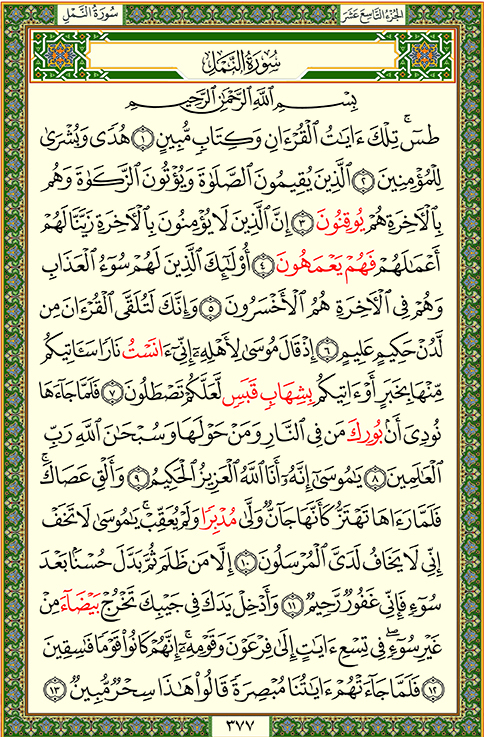 الجزء التاسع عشر
سورة النمل
سُورَةُ النَّمْلِ
بِسْمِ اللَّهِ الرَّحْمَٰنِ الرَّحِيمِ
طسٓ ۚ تِلْكَ ءَايَاتُ الْقُرْءَانِ وَكِتَابٍ مُّبِينٍ ١ هُدًى وَبُشْرَىٰ
لِلْمُؤْمِنِينَ ٢ الَّذِينَ يُقِيمُونَ الصَّلَوٰةَ وَيُؤْتُونَ الزَّكَوٰةَ وَهُم
بِالْأَخِرَةِ هُمْ يُوقِنُونَ ٣ إِنَّ الَّذِينَ لَا يُؤْمِنُونَ بِالْأَخِرَةِ زَيَّنَّا لَهُمْ
أَعْمَالَهُمْ فَهُمْ يَعْمَهُونَ ٤ أُوْلَٰٓئِكَ الَّذِينَ لَهُمْ سُوٓءُ الْعَذَابِ
وَهُمْ فِي الْأَخِرَةِ هُمُ الْأَخْسَرُونَ ٥ وَإِنَّكَ لَتُلَقَّى الْقُرْءَانَ مِن
لَّدُنْ حَكِيمٍ عَلِيمٍ ٦ إِذْ قَالَ مُوسَىٰ لِأَهْلِهِۦٓ إِنِّيٓ ءَانَسْتُ نَارًا سَـَٔاتِيكُم
مِّنْهَا بِخَبَرٍ أَوْ ءَاتِيكُم بِشِهَابٍ قَبَسٍ لَّعَلَّكُمْ تَصْطَلُونَ ٧ فَلَمَّا جَآءَهَا
نُودِيَ أَنۢ بُورِكَ مَن فِي النَّارِ وَمَنْ حَوْلَهَا وَسُبْحَانَ اللَّهِ رَبِّ
الْعَالَمِينَ ٨ يَامُوسَىٰٓ إِنَّهُۥٓ أَنَا اللَّهُ الْعَزِيزُ الْحَكِيمُ ٩ وَأَلْقِ عَصَاكَ ۚ
فَلَمَّا رَءَاهَا تَهْتَزُّ كَأَنَّهَا جَآنٌّ وَلَّىٰ مُدْبِرًا وَلَمْ يُعَقِّبْ ۚ يَامُوسَىٰ لَا تَخَفْ
إِنِّي لَا يَخَافُ لَدَيَّ الْمُرْسَلُونَ ١٠ إِلَّا مَن ظَلَمَ ثُمَّ بَدَّلَ حُسْنًۢا بَعْدَ
سُوٓءٍ فَإِنِّي غَفُورٌ رَّحِيمٌ ١١ وَأَدْخِلْ يَدَكَ فِي جَيْبِكَ تَخْرُجْ بَيْضَآءَ مِنْ
غَيْرِ سُوٓءٍ ۖ فِي تِسْعِ ءَايَاتٍ إِلَىٰ فِرْعَوْنَ وَقَوْمِهِۦٓ ۚ إِنَّهُمْ كَانُوا۟ قَوْمًا فَاسِقِينَ
١٢ فَلَمَّا جَآءَتْهُمْ ءَايَاتُنَا مُبْصِرَةً قَالُوا۟ هَٰذَا سِحْرٌ مُّبِينٌ ١٣
٣٧٧